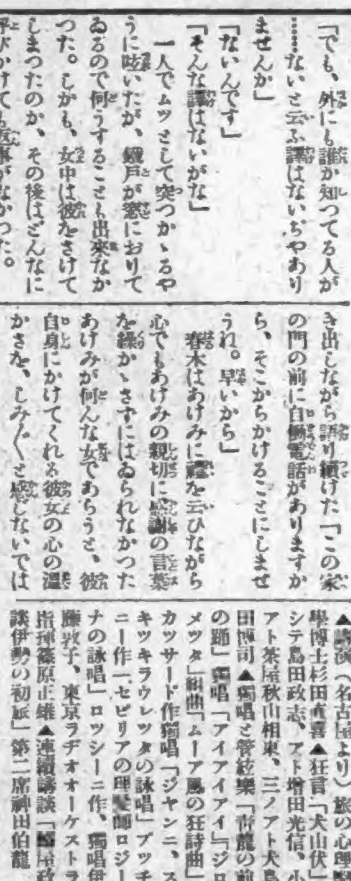 「でも、外にも誰か知つてる人が
……ないと云ふ譯はないぢやあり
ませんか」
「ないんです」
「そんな譯はないがな」
一人でムツとして突つかゝるや
うに呟いたが、鐵戸が窓におりて
ゐるので何うすることも出來なか
つた。しかも、女中は彼をさけて
しまつたのか、その後はどんなに
呼びかけても返事がなかつた。
き出しながら語り續けた「この家
の門の前に自働電話がありますか
ら、そこからかけることにしませ
うれ。早いから」
春木はあけみに禮を云ひながら
心でもあけみの親切に感謝の言葉
を繰かへさずにはゐられなかつた
あけみが何んな女であらうと、彼
自身にかけてくれる彼女の心の温
かさを、しみ〴〵と感じないでは
▲講演（名古屋より）旅の心理 醫
學博士杉田直喜▲狂言「犬山伏」
シテ島田政志、アト増田光信、小
アト茶屋秋山相東、三ノアト犬島
田博司▲獨唱と管絃樂「青龍の前
の踊」獨唱「アイアイアイ」「ジロ
メツタ」組曲「ムーア風の狂詩曲」
カツサード作獨唱「ジヤンニ、ス
キツキラウレツタの詠唱」プツチ
ニー作「セビリアの理髪師ロジー
ナの詠唱」ロツシーニ作、獨唱伊
藤敦子、東京ラヂオオーケストラ
指揮篠原正雄▲連續講談「
談伊勢の初旅」第二席神田伯龍